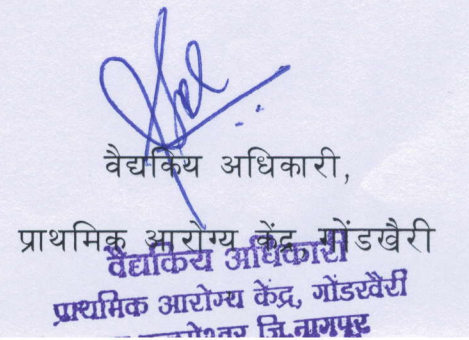 वैद्यकिय अधिकारी,
प्राथमिक आरोग्य केंद्र गोंडखैरी
वैद्यकिय अधिकारी
प्राथमिक आरोग्य केंद्र, गोंडखैरी
जि.नागपूर